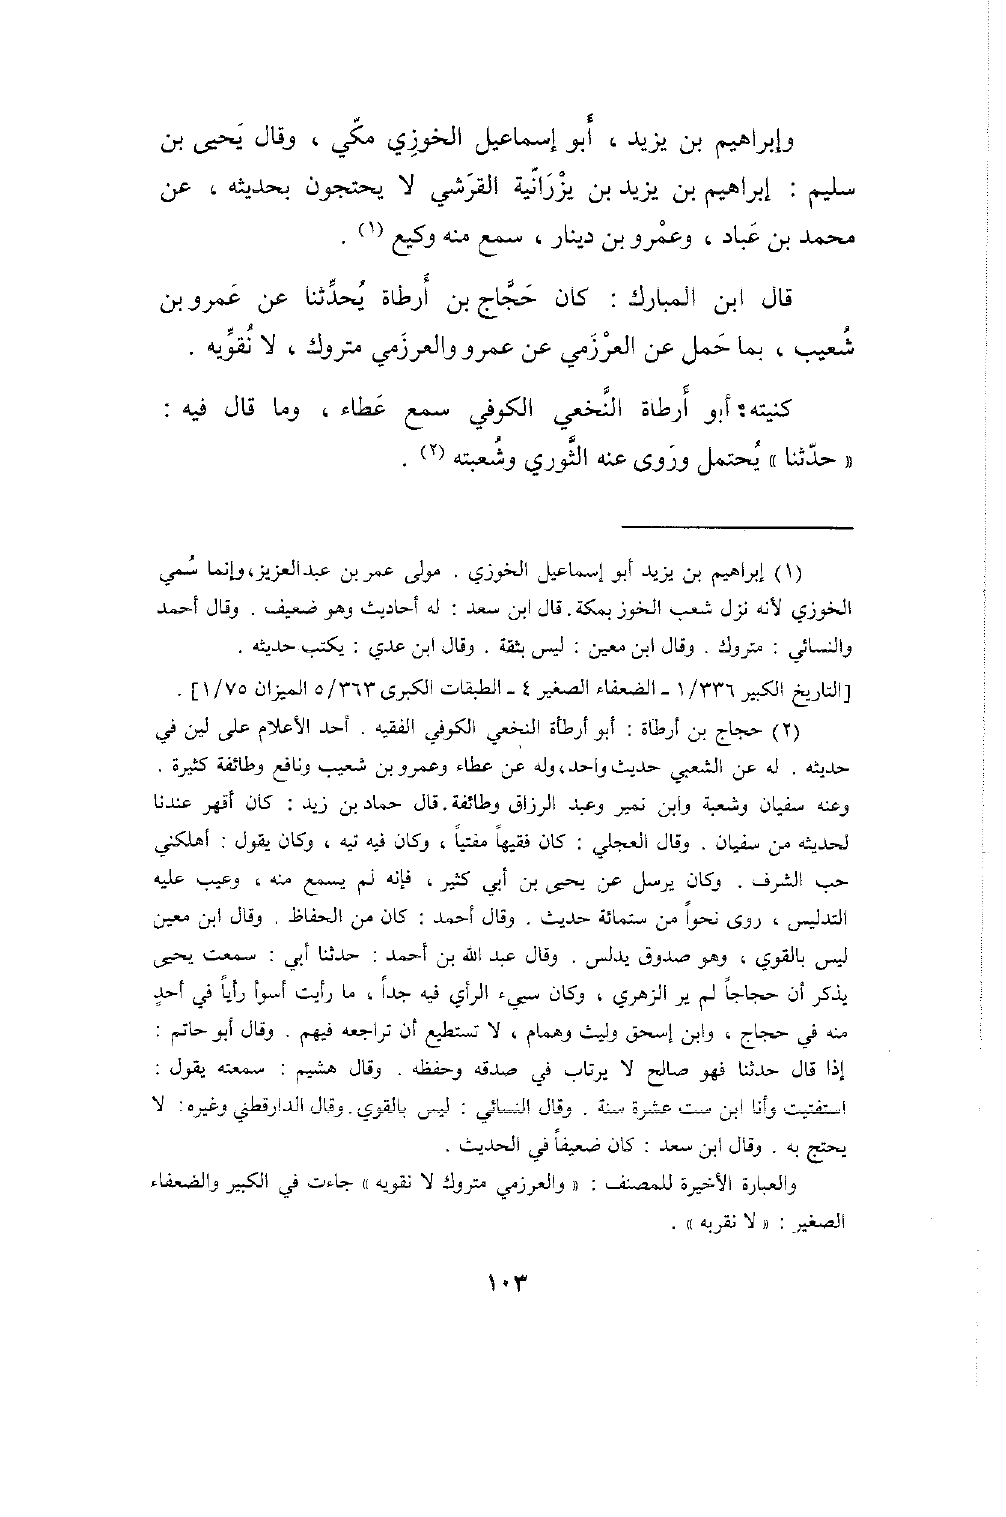 وإبراهيم بن يزيد ، أَبو إسماعيل الخوزِي مكّي ، وقال يَحيى بن
سليم : إبراهيم بن يزيد بن يزْرَانّية القرَشي لا يحتجون بحديثه ، عن
محمد بن عَباد ، وعمْرو بن دينار ، سمع منه وكيع (١) .
قال ابن المبارك : كان حَجَّاج بن أَرطاة يُحدِّثنا عن عَمرو بن
شُعيب ، بما حَمل عن العرْزَمي عن عمرو والعرزَمي متروك ، لا نُقوِّيه .
كنيته : أبو أَرطاة النَّخعي الكوفي سمع عَطاء ، وما قال فيه :
« حدّثنا » يُحتمل ورَوى عنه الثَّوري وشُعبته (٢) .
(١) إبراهيم بن يزيد أبو إسماعيل الخوزي . مولى عمر بن عبدالعزيز، وإنما سُمي
الخوزي لأنه نزل شعب الخوز بمكة. قال ابن سعد : له أحاديث وهو ضعيف . وقال أحمد
والنسائي : متروك . وقال ابن معين : ليس بثقة . وقال ابن عدي : يكتب حديثه .
[التاريخ الكبير ١/٣٣٦ ـ الضعفاء الصغير ٤ ـ الطبقات الكبرى ٥/٣٦٣ الميزان ١/٧٥] .
(٢) حجاج بن أرطاة : أبو أرطأة النخعي الكوفي الفقيه . أحد الأعلام على لين في
حديثه . له عن الشعبي حديث واحد، وله عن عطاء وعمرو بن شعيب ونافع وطائفة كثيرة .
وعنه سفيان وشعبة وابن نمير وعبد الرزاق وطائفة. قال حماد بن زيد : كان أقهر عندنا
لحديثه من سفيان . وقال العجلي : كان فقيهاً مفتياً ، وكان فيه تيه ، وكان يقول : أهلكني
حب الشرف . وكان يرسل عن يحيى بن أبي كثير ، فإنه لم يسمع منه ، وعيب عليه
التدليس ، روى نحواً من ستمائة حديث . وقال أحمد : كان من الحفاظ . وقال ابن معين
ليس بالقوي ، وهو صدوق يدلس . وقال عبد الله بن أحمد : حدثنا أبي : سمعت يحيى
يذكر أن حجاجاً لم ير الزهري ، وكان سيىء الرأي فيه جداً ، ما رأيت أسوأ رأياً في أحدٍ
منه في حجاج ، وابن إسحق وليث وهمام ، لا تستطيع أن تراجعه فيهم . وقال أبو حاتم :
إذا قال حدثنا فهو صالح لا يرتاب في صدقه وحفظه . وقال هشيم : سمعته يقول :
استفتيت وأنا ابن ست عشرة سنة . وقال النسائي : ليس بالقوي . وقال الدارقطني وغيره: لا
يحتج به . وقال ابن سعد : كان ضعيفاً في الحديث .
والعبارة الأخيرة للمصنف : « والعرزمي متروك لا نقويه » جاءت في الكبير والضعفاء
الصغير : « لا نقربه » .
١٠٣